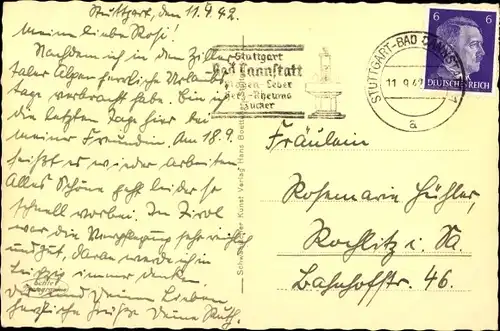 Stuttgart, den 11.9.42.
Meine liebe Rosi!
Nachdem ich in den Ziller-
taler Alpen herrliche Urlaubs
tage verbracht habe. Bin ich
die letzten Tage hier bei
meiner Freundin. Am 18.9.
heißt es wieder arbeiten
Alles Schöne geht leider so
schnell vorbei. In Tirol
war die Verpflegung sehr reichlich
und gut, daran werde ich in
Leipzig immer denken.
Dir und Deinen Lieben
herzliche Grüße Deine Ruth.
Stuttgart
Bad Cannstatt
Magen-Leber
Herz-Rheuma
Zucker
STUTTGART-BAD CANNSTATT 1
11.9.42
a
6 6
DEUTSCHES REICH
Fräulein
Rosemarie Hühler,
Rochlitz i. Sa.
Bahnhofstr. 46.
Kunst Verlag Hans